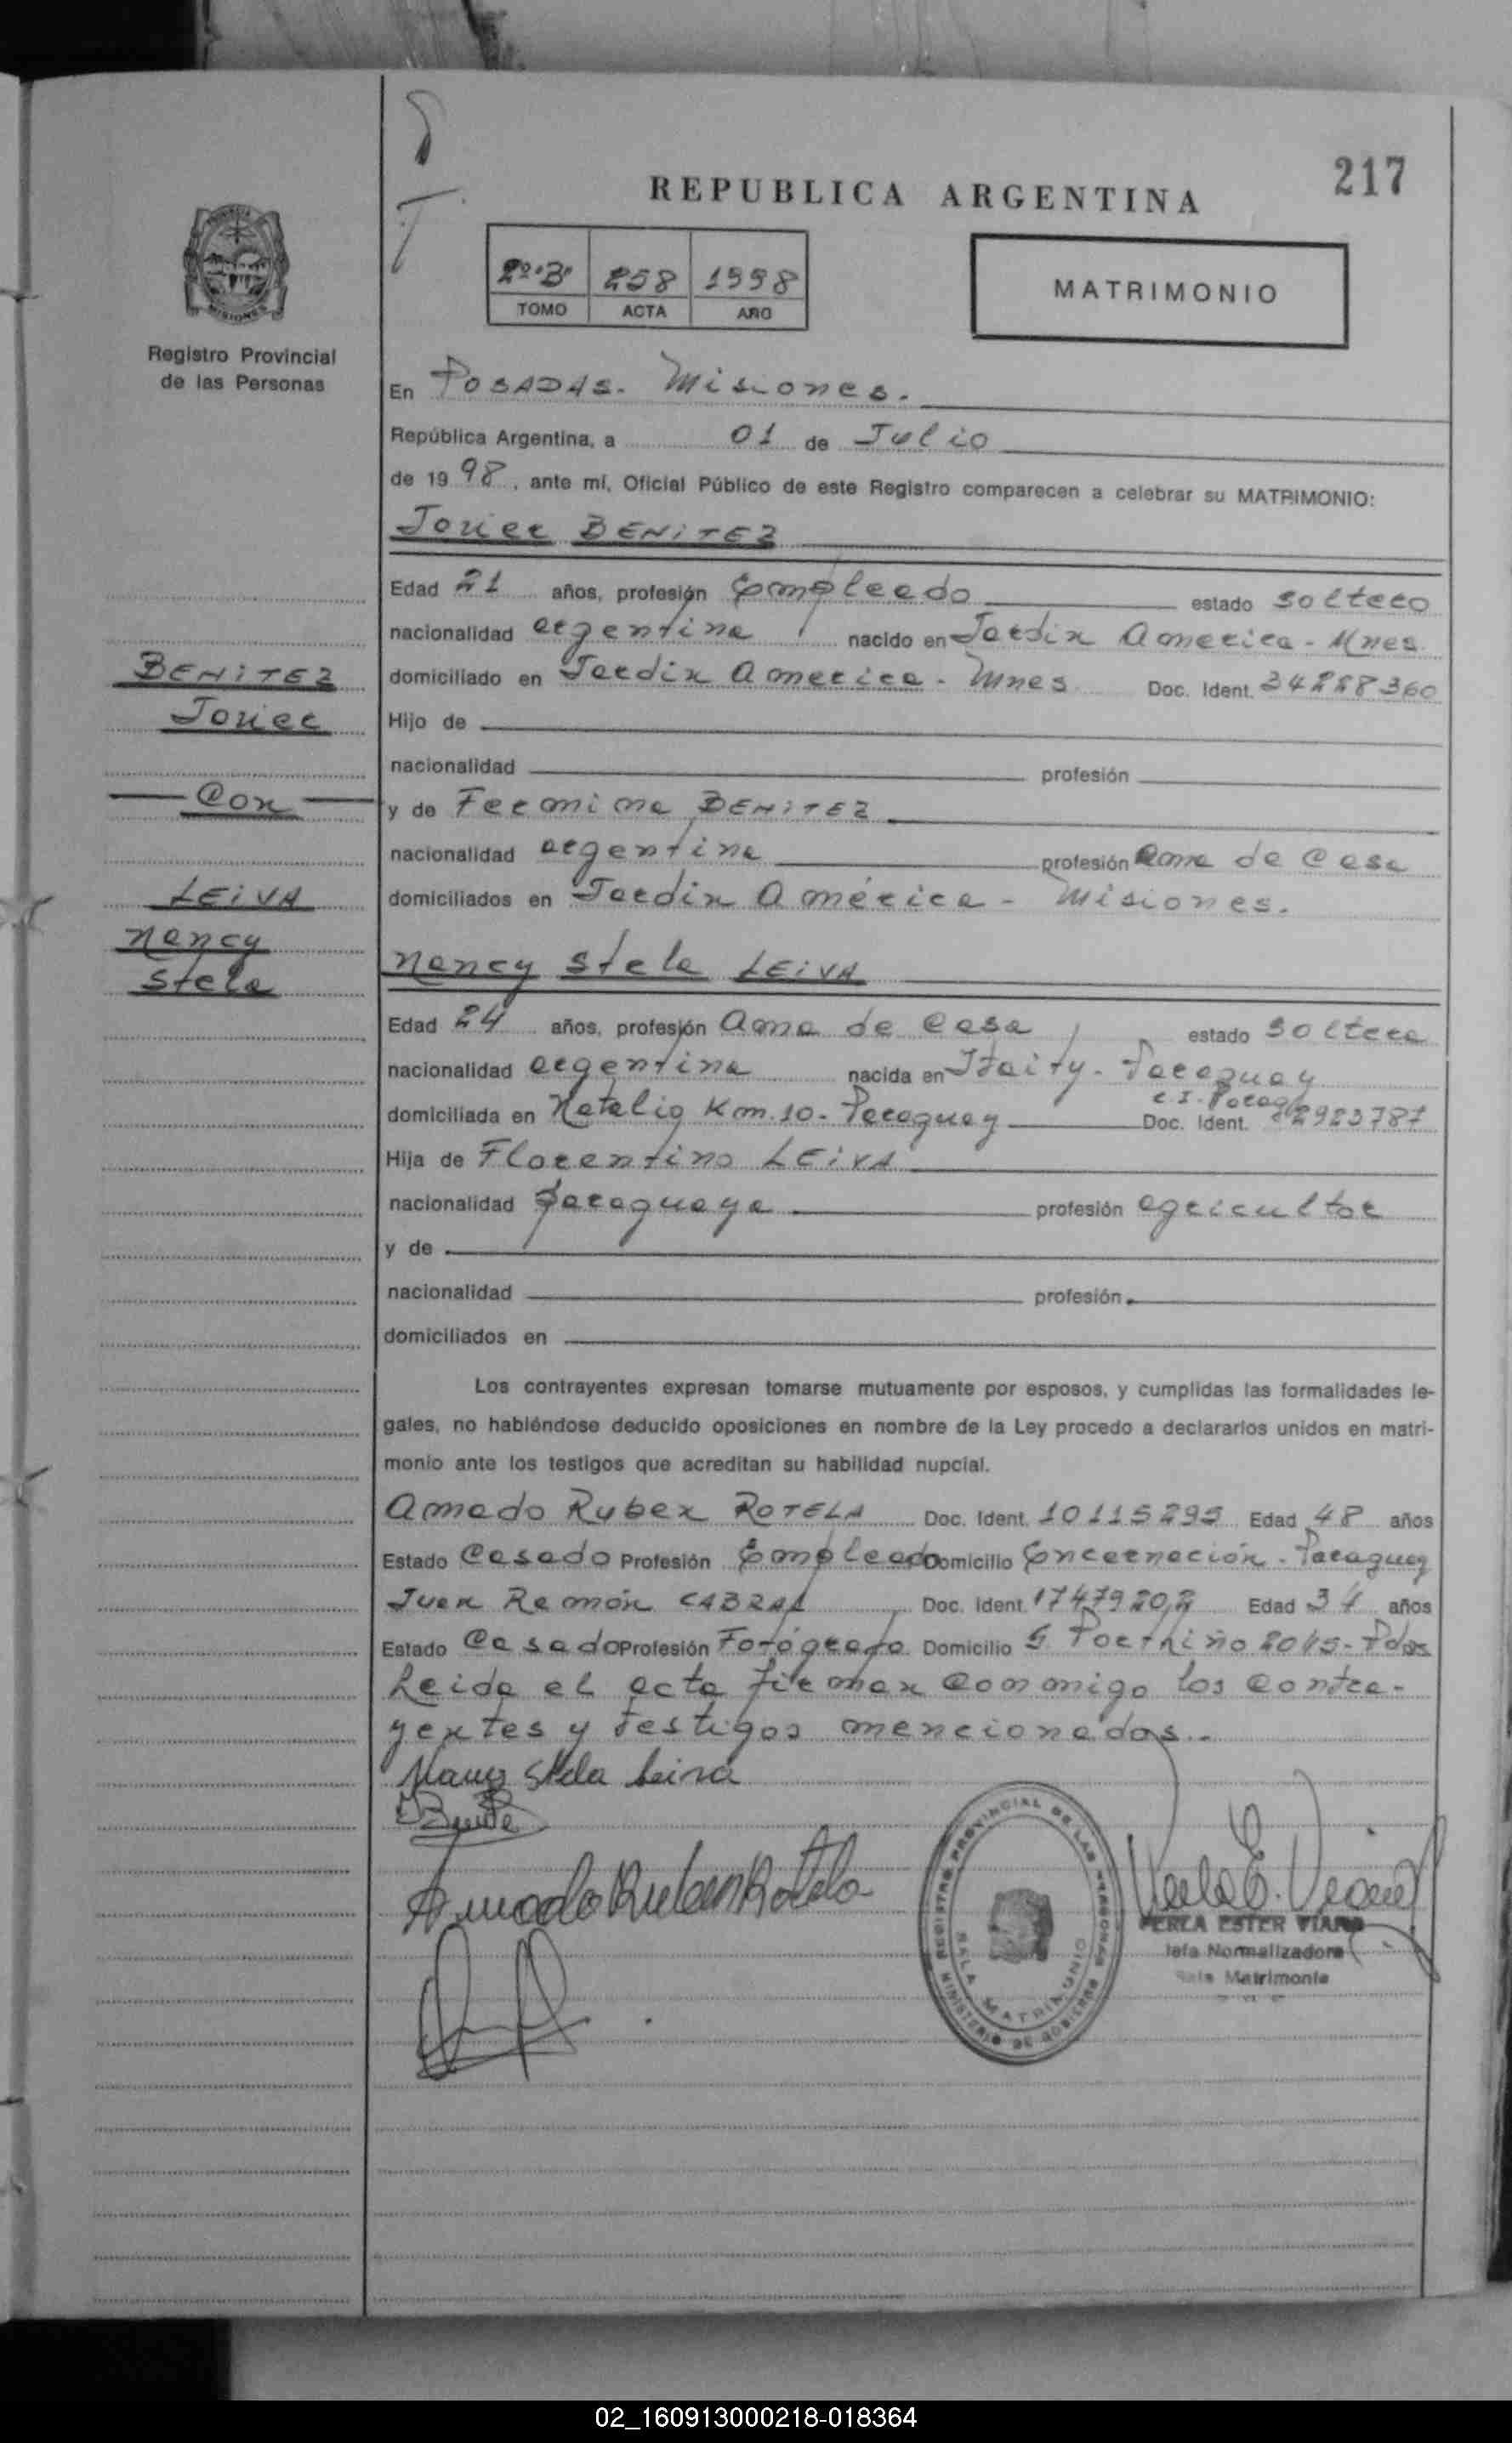 217
REPUBLICA ARGENTINA
2º"B" 258 1998
TOMO ACTA AÑO
MATRIMONIO
Registro Provincial
de las Personas
En POSADAS. Misiones.
República Argentina, a 01 de Julio
de 1998, ante mí, Oficial Público de este Registro comparecen a celebrar su MATRIMONIO:
Javier BENITEZ
Edad 21 años, profesión Empleado estado soltero
nacionalidad argentina nacido en Jardin America - Mnes
domiciliado en Jardin America - Mnes Doc. Ident. 34228360
Hijo de
nacionalidad profesión
y de Fermina BENITEZ
nacionalidad argentina profesión Ama de Casa
domiciliados en Jardin América - Misiones.
BENITEZ
Javier
Con
LEIVA
Nancy
Stela
Nancy Stela LEIVA
Edad 24 años, profesión Ama de Casa estado soltera
nacionalidad argentina nacida en Itaity - Paraguay
domiciliada en Natalio Km. 10 - Paraguay Doc. Ident. C.I. Parag 2923787
Hija de Florentino LEIVA
nacionalidad paraguaya profesión agricultor
y de
nacionalidad profesión
domiciliados en
Los contrayentes expresan tomarse mutuamente por esposos, y cumplidas las formalidades le-
gales, no habiéndose deducido oposiciones en nombre de la Ley procedo a declararlos unidos en matri-
monio ante los testigos que acreditan su habilidad nupcial.
Amado Ruben ROTELA Doc. Ident. 10115295 Edad 48 años
Estado Casado Profesión Empleado Domicilio Encarnación - Paraguay
Juan Ramón CABRAL Doc. Ident. 17479202 Edad 31 años
Estado Casado Profesión Fotógrafo Domicilio G. Portniño 2045 - Pdas
Leida el acta firman conmigo los contra-
yentes y testigos mencionados.-
Nancy Stela Leiva
Amado Ruben Rotela
REGISTRO PROVINCIAL DE LAS PERSONAS
MINISTERIO DE GOBIERNO
SALA MATRIMONIO
PERLA ESTER VIANA
Jefa Normalizadora
Sala Matrimonio
02_160913000218-018364